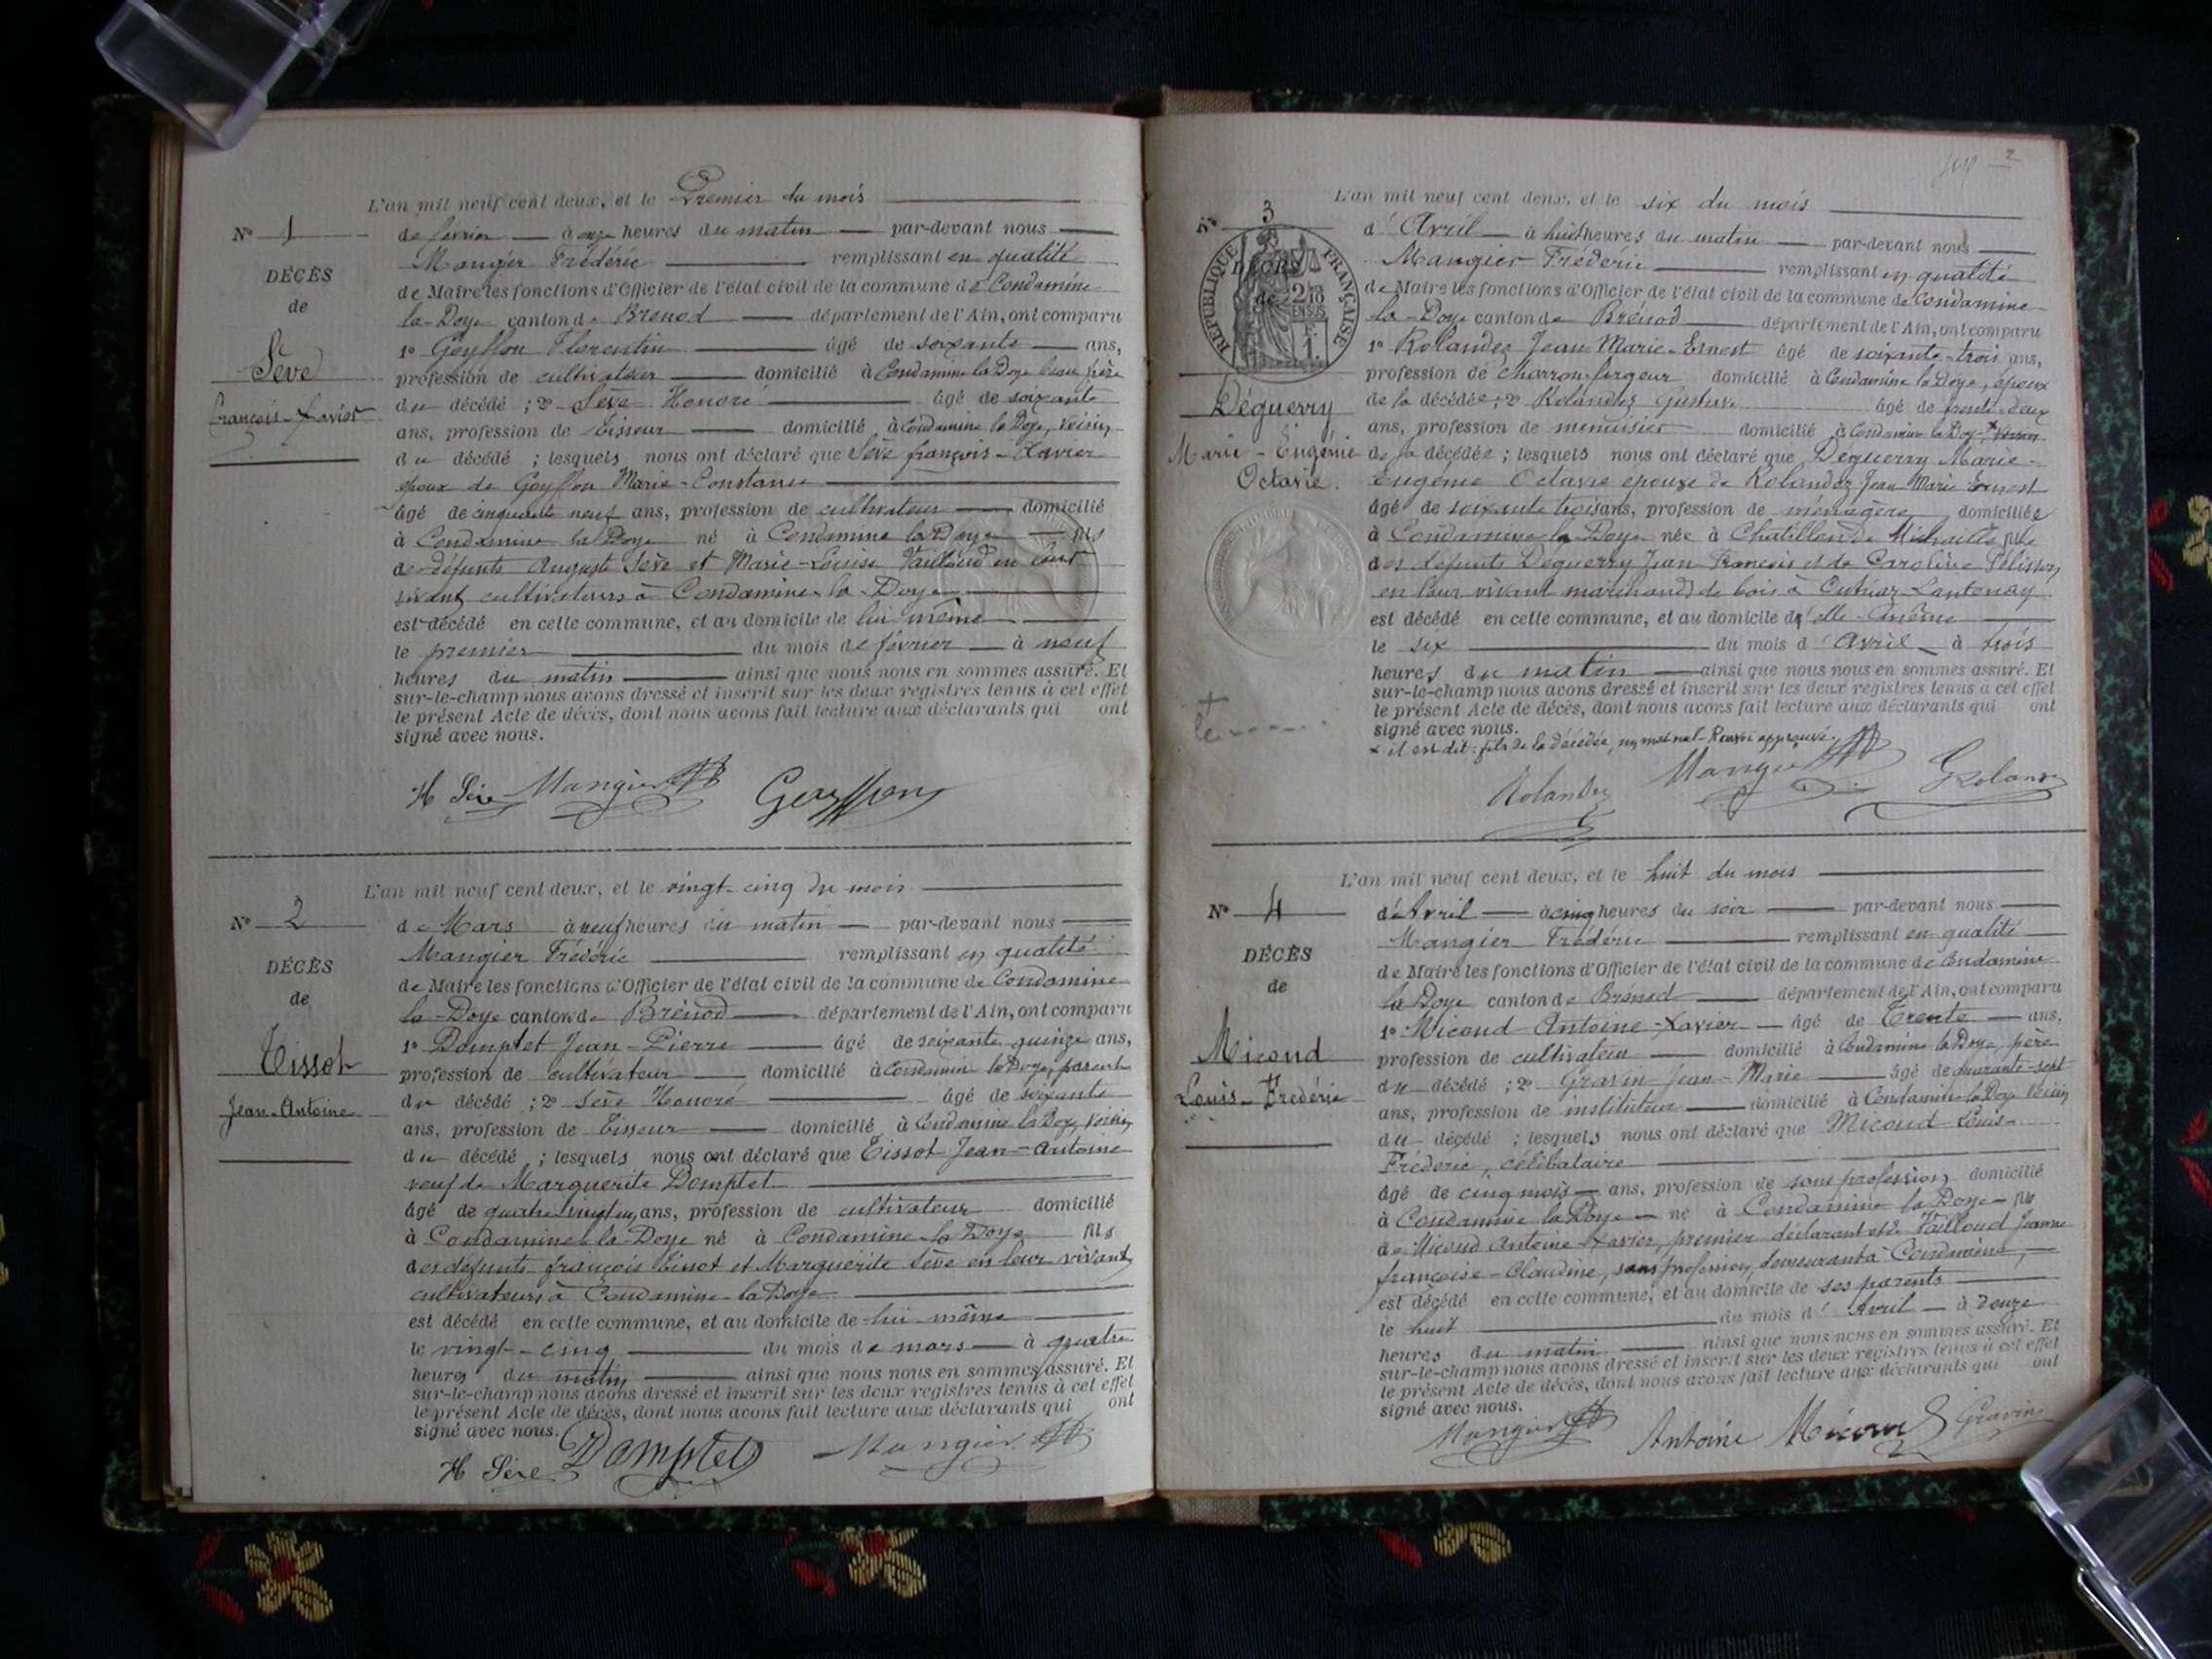 L'an mil neuf cent deux, et le Premier du mois
N° 1
de février à onze heures du matin par-devant nous
Mangier Frédéric remplissant en qualité
DÉCÈS
de Maire les fonctions d'Officier de l'état civil de la commune de Condamine
de
la-Doye canton de Brénod département de l'Ain, ont comparu
1° Goyffon Florentin âgé de soixante ans,
Sève
profession de cultivateur domicilié à Condamine la Doye beau frère
François-Xavier
du décédé ; 2° Sève Honoré âgé de soixante
ans, profession de tisseur domicilié à Condamine la Doye, voisin
du décédé ; lesquels nous ont déclaré que Sève françois-Xavier
époux de Goyffon Marie-Constance
âgé de cinquante neuf ans, profession de cultivateur domicilié
à Condamine la Doye né à Condamine la Doye fils
de défunts Auguste Sève et Marie-Louise Vailloud en leur
vivant cultivateurs à Condamine-la-Doye
est décédé en cette commune, et au domicile de lui même
le premier du mois de février à neuf
heures du matin ainsi que nous nous en sommes assuré. Et
sur-le-champ nous avons dressé et inscrit sur les deux registres tenus à cet effet
le présent Acte de décès, dont nous avons fait lecture aux déclarants qui ont
signé avec nous.
H Sève Mangier Goyffon
L'an mil neuf cent deux, et le vingt-cinq du mois
N° 2
de Mars à neuf heures du matin par-devant nous
Mangier Frédéric remplissant en qualité
DÉCÈS
de Maire les fonctions d'Officier de l'état civil de la commune de Condamine
de
la-Doye canton de Brénod département de l'Ain, ont comparu
1° Domptet Jean-Pierre âgé de soixante quinze ans,
Tissot
profession de cultivateur domicilié à Condamine la Doye, parent
Jean-Antoine
du décédé ; 2° Sève Honoré âgé de soixante
ans, profession de Tisseur domicilié à Condamine la Doye, voisin
du décédé ; lesquels nous ont déclaré que Tissot Jean-Antoine
veuf de Marguerite Domptet
âgé de quatre vingt un ans, profession de cultivateur domicilié
à Condamine la Doye né à Condamine la Doye fils
des défunts françois Tissot et Marguerite Sève en leur vivant
cultivateurs à Condamine-la-Doye
est décédé en cette commune, et au domicile de lui même
le vingt-cinq du mois de mars à quatre
heures du matin ainsi que nous nous en sommes assuré. Et
sur-le-champ nous avons dressé et inscrit sur les deux registres tenus à cet effet
le présent Acte de décès, dont nous avons fait lecture aux déclarants qui ont
signé avec nous.
H Sève Domptet Mangier
2
L'an mil neuf cent deux, et le six du mois
N° 3
d'Avril à huit heures du matin par-devant nous
Mangier Frédéric remplissant en qualité
RÉPUBLIQUE FRANÇAISE
DÉCÈS
de Maire les fonctions d'Officier de l'état civil de la commune de Condamine
de
2/10 EN SUS
la-Doye canton de Brénod département de l'Ain, ont comparu
1° Rolandez Jean Marie-Ernest âgé de soixante-trois ans,
profession de charron-forgeur domicilié à Condamine la Doye, époux
Déguerry
de la décédée ; 2° Rolandez Gustave âgé de trente-deux
ans, profession de menuisier domicilié à Condamine la Doye x voisin
Marie-Eugénie
de la décédée ; lesquels nous ont déclaré que Déguerry Marie-
Octavie.
Eugénie Octavie épouse de Rolandez Jean Marie Ernest
âgé de soixante trois ans, profession de ménagère domiciliée
à Condamine la Doye née à Chatillon de Michaille fille
des défunts Déguerry Jean François et de Caroline Pélisson
en leur vivant marchands de bois à Outriaz-Lantenay
est décédé en cette commune, et au domicile d'elle-même
le six du mois d'Avril à trois
heures du matin ainsi que nous nous en sommes assuré. Et
sur-le-champ nous avons dressé et inscrit sur les deux registres tenus à cet effet
le présent Acte de décès, dont nous avons fait lecture aux déclarants qui ont
signé avec nous.
x il est dit : fils de la décédée, un mot nul. Renvoi approuvé.
Rolandez Mangier G Rolandez
L'an mil neuf cent deux, et le huit du mois
N° 4
d'Avril à cinq heures du soir par-devant nous
Mangier Frédéric remplissant en qualité
DÉCÈS
de Maire les fonctions d'Officier de l'état civil de la commune de Condamine
de
la Doye canton de Brénod département de l'Ain, ont comparu
1° Micoud Antoine-Xavier âgé de Trente ans,
Micoud
profession de cultivateur domicilié à Condamine la Doye, père
Louis-Frédéric
du décédé ; 2° Gravin Jean-Marie âgé de quarante-sept
ans, profession de instituteur domicilié à Condamine la Doye voisin
du décédé ; lesquels nous ont déclaré que Micoud Louis-
Frédéric, célibataire
âgé de cinq mois ans, profession de sans profession domicilié
à Condamine la Doye né à Condamine la Doye fils
de Micoud Antoine-Xavier, premier déclarant et de Vailloud Jeanne
françoise-Claudine, sans profession, demeurant à Condamine,
est décédé en cette commune, et au domicile de ses parents
le huit du mois d'Avril à douze
heures du matin ainsi que nous nous en sommes assuré. Et
sur-le-champ nous avons dressé et inscrit sur les deux registres tenus à cet effet
le présent Acte de décès, dont nous avons fait lecture aux déclarants qui ont
signé avec nous.
Mangier Antoine Micoud Gravin